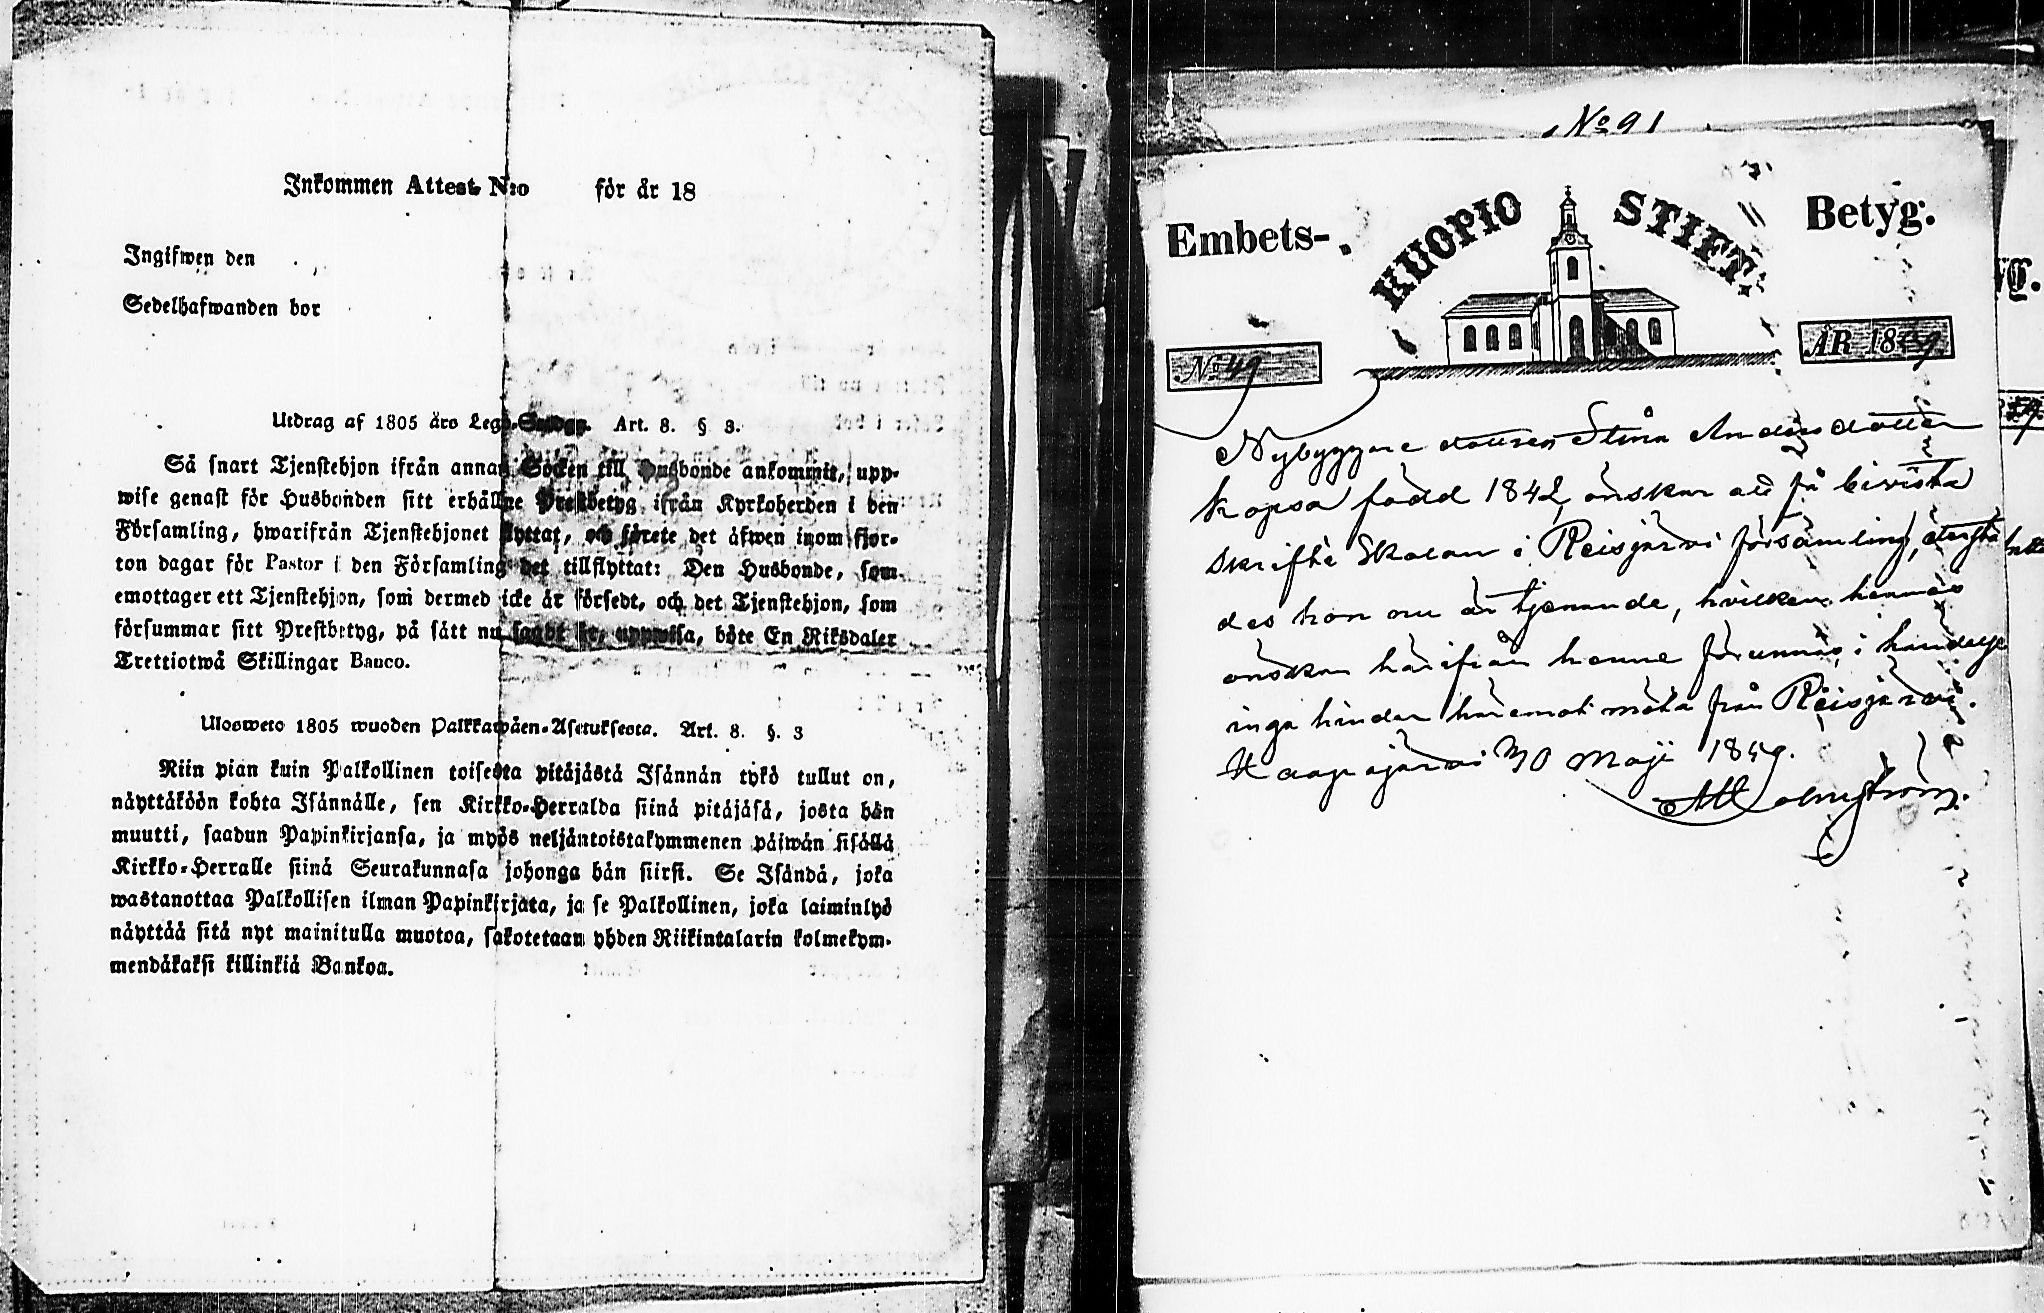 Inkommen Attest N:o för år 18
Ingifwen den
Sedelhafwanden bor
Utdrag af 1805 års Lego-Stadga. Art. 8. § 3.
Så snart Tjenstehjon ifrån annan Socken till Husbonde ankommit, upp-
wise genast för Husbonden sitt erhållne Prestbetyg ifrån Kyrkoherden i den
Församling, hwarifrån Tjenstehjonet flyttat, och förete det äfwen inom fjor-
ton dagar för Pastor i den Församling det tillflyttat: Den Husbonde, som
emottager ett Tjenstehjon, som dermed icke är försedt, och det Tjenstehjon, som
försummar sitt Prestbetyg, på sätt nu sagdt är, uppwisa, böte En Riksdaler
Trettiotwå Skillingar Banco.
Ulosweto 1805 wuoden Palkkawäen-Asetuksesta. Art. 8. §. 3
Niin pian kuin Palkollinen toisesta pitäjästä Isännän tykö tullut on,
näyttäköön kohta Isännälle, sen Kirkko-Herralda siinä pitäjäsä, josta hän
muutti, saadun Papinkirjansa, ja myös neljäntoistakymmenen päiwän sisällä
Kirkko-Herralle siinä Seurakunnasa johonga hän siirsi. Se Isändä, joka
wastanottaa Palkollisen ilman Papinkirjata, ja se Palkollinen, joka laiminlyö
näyttää sitä nyt mainitulla muotoa, sakotetaan yhden Riikintalarin kolmekym-
mendäkaksi killinkiä Bankoa.
No 91
Embets- KUOPIO STIFT. Betyg.
No 49 ÅR 1859
Nybyggare dottren Stina Andersdotter
Kopsa född 1842, önskar att få bivista
Skrifte Skolan i Reisjärvi församling,
des hon nu är tjenande, hvilken hennes
önskan härifrån henne förunnas, i händelse
inga hinder häremot möta från Reisjärvi.
Haapajärvi 30 Maji 1859.